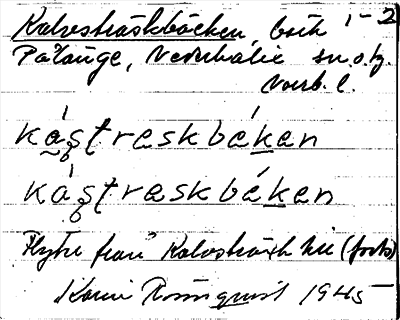 Kalvsträskbäcken, bäck 1-2
Pålänge, Nederkalix sn o. tg.
Norrb. l.
kás̥trɐskbék̲en
kás̥trɐskbék̲en
Flyter från Kalvsträsk till (forts)
Karin Rönnquist 1945